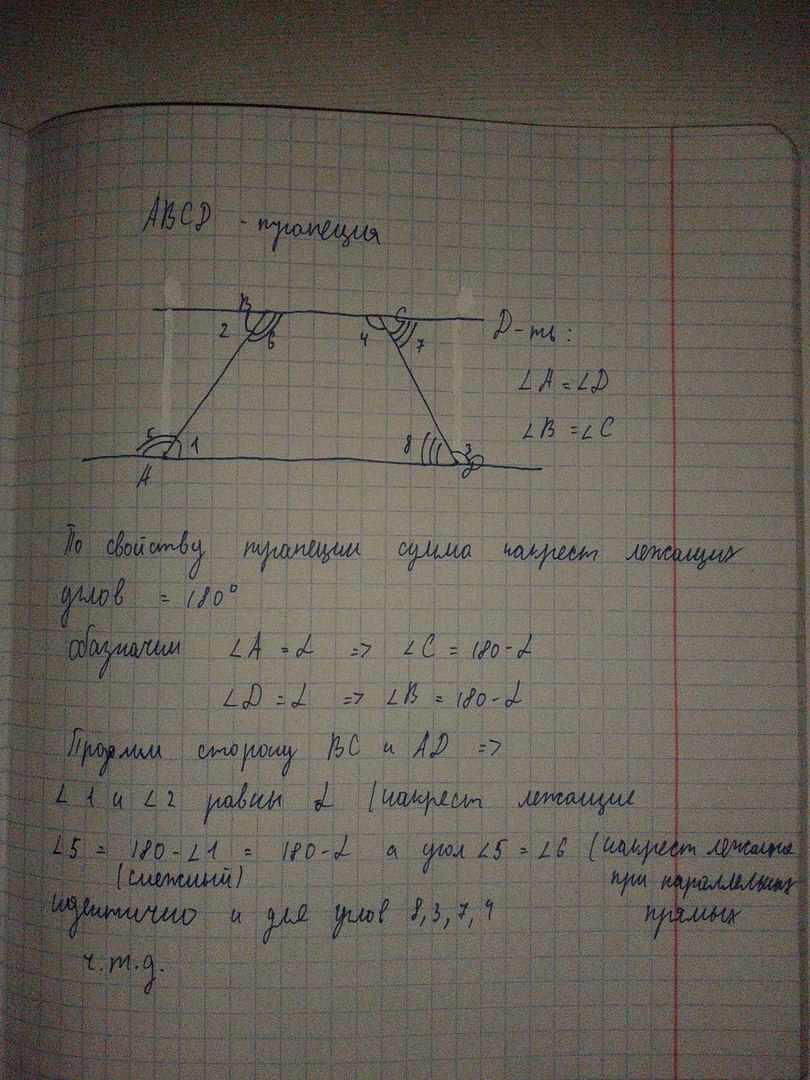 ABCD - трапеция
B C
2 6 4 7
Д-ть:
∠A = ∠D
∠B = ∠C
5 1 8 3
A D
По свойству трапеции сумма накрест лежащих
углов = 180°
обазначим ∠A = α => ∠C = 180-α
∠D = α => ∠B = 180-α
Продлим сторону BC и AD =>
∠1 и ∠2 равны α (накрест лежащие
∠5 = 180-∠1 = 180-α а угол ∠5 = ∠6 (накрест лежащие
(смежный) при параллельных
идентично и для углов 8, 3, 7, 4 прямых
ч.т.д.